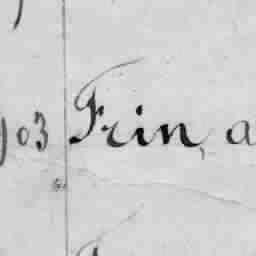 903 Frin, a